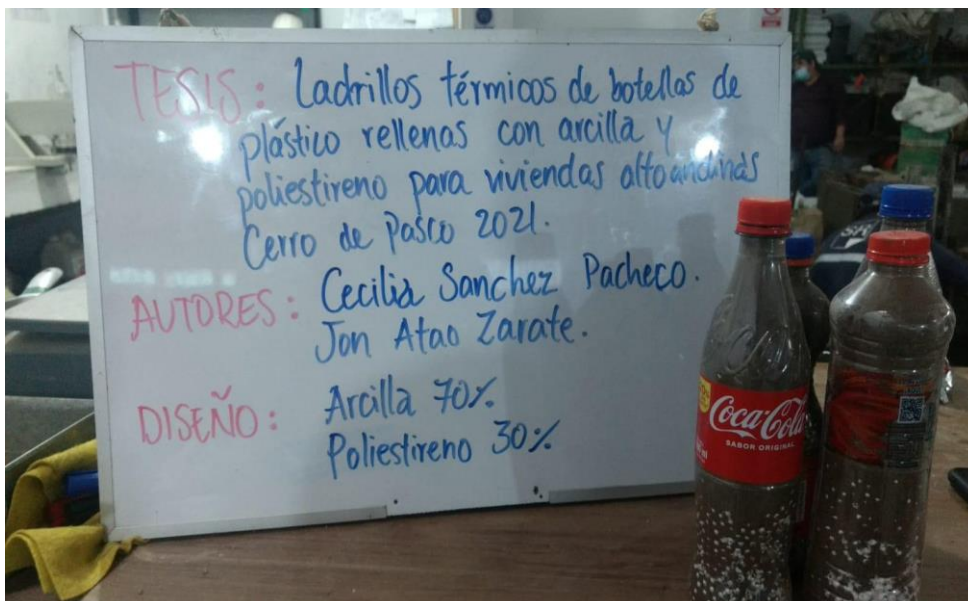 TESIS: Ladrillos térmicos de botellas de
plástico rellenas con arcilla y
poliestireno para viviendas altoandinas
Cerro de Pasco 2021.
AUTORES: Cecilia Sanchez Pacheco.
Jon Atao Zarate.
DISEÑO: Arcilla 70%
Poliestireno 30%
Coca-Cola
SABOR ORIGINAL